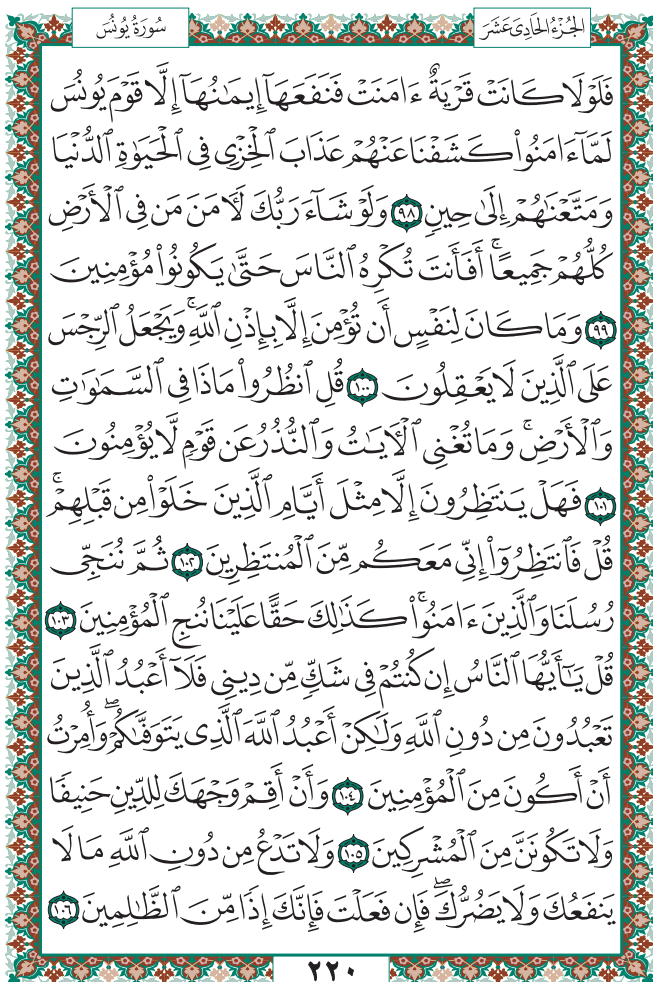 سُورَةُ يُونُسَ
الجُزْءُ الحَادِىَ عَشَرَ
فَلَوْلَا كَانَتْ قَرْيَةٌ ءَامَنَتْ فَنَفَعَهَآ إِيمَٰنُهَآ إِلَّا قَوْمَ يُونُسَ
لَمَّآ ءَامَنُوا۟ كَشَفْنَا عَنْهُمْ عَذَابَ ٱلْخِزْىِ فِى ٱلْحَيَوٰةِ ٱلدُّنْيَا
وَمَتَّعْنَٰهُمْ إِلَىٰ حِينٍ ٩٨ وَلَوْ شَآءَ رَبُّكَ لَـَٔامَنَ مَن فِى ٱلْأَرْضِ
كُلُّهُمْ جَمِيعًا ۚ أَفَأَنتَ تُكْرِهُ ٱلنَّاسَ حَتَّىٰ يَكُونُوا۟ مُؤْمِنِينَ
٩٩ وَمَا كَانَ لِنَفْسٍ أَن تُؤْمِنَ إِلَّا بِإِذْنِ ٱللَّهِ ۚ وَيَجْعَلُ ٱلرِّجْسَ
عَلَى ٱلَّذِينَ لَا يَعْقِلُونَ ١٠٠ قُلِ ٱنظُرُوا۟ مَاذَا فِى ٱلسَّمَٰوَٰتِ
وَٱلْأَرْضِ ۚ وَمَا تُغْنِى ٱلْـَٔايَٰتُ وَٱلنُّذُرُ عَن قَوْمٍ لَّا يُؤْمِنُونَ
١٠١ فَهَلْ يَنتَظِرُونَ إِلَّا مِثْلَ أَيَّامِ ٱلَّذِينَ خَلَوْا۟ مِن قَبْلِهِمْ ۚ
قُلْ فَٱنتَظِرُوٓا۟ إِنِّى مَعَكُم مِّنَ ٱلْمُنتَظِرِينَ ١٠٢ ثُمَّ نُنَجِّى
رُسُلَنَا وَٱلَّذِينَ ءَامَنُوا۟ ۚ كَذَٰلِكَ حَقًّا عَلَيْنَا نُنجِ ٱلْمُؤْمِنِينَ ١٠٣
قُلْ يَٰٓأَيُّهَا ٱلنَّاسُ إِن كُنتُمْ فِى شَكٍّ مِّن دِينِى فَلَآ أَعْبُدُ ٱلَّذِينَ
تَعْبُدُونَ مِن دُونِ ٱللَّهِ وَلَٰكِنْ أَعْبُدُ ٱللَّهَ ٱلَّذِى يَتَوَفَّىٰكُمْ ۖ وَأُمِرْتُ
أَنْ أَكُونَ مِنَ ٱلْمُؤْمِنِينَ ١٠٤ وَأَنْ أَقِمْ وَجْهَكَ لِلدِّينِ حَنِيفًا
وَلَا تَكُونَنَّ مِنَ ٱلْمُشْرِكِينَ ١٠٥ وَلَا تَدْعُ مِن دُونِ ٱللَّهِ مَا لَا
يَنفَعُكَ وَلَا يَضُرُّكَ ۖ فَإِن فَعَلْتَ فَإِنَّكَ إِذًا مِّنَ ٱلظَّٰلِمِينَ ١٠٦
٢٢٠